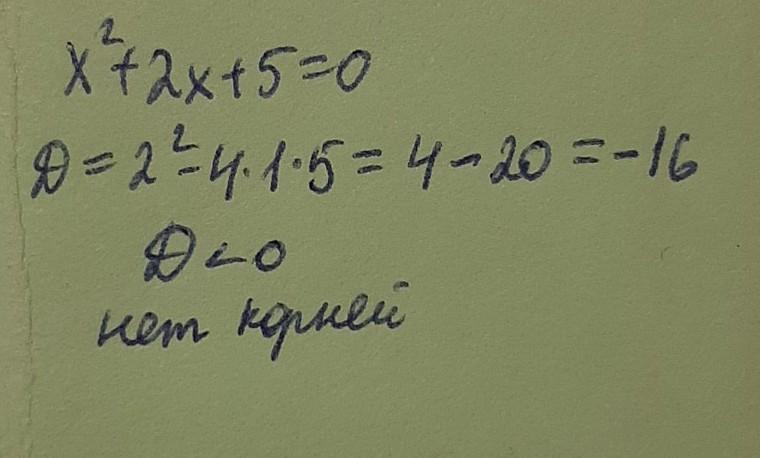 x²+2x+5=0
D=2²-4·1·5=4-20=-16
D<0
нет корней